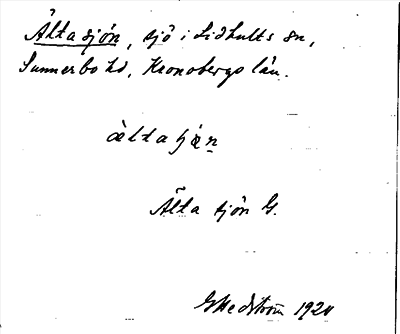 Ältasjön, sjö i Lidhults sn,
Sunnerbo hd, Kronobergs län.
àltaʃæ̀n
Älta sjön G.
G Hedström 1920